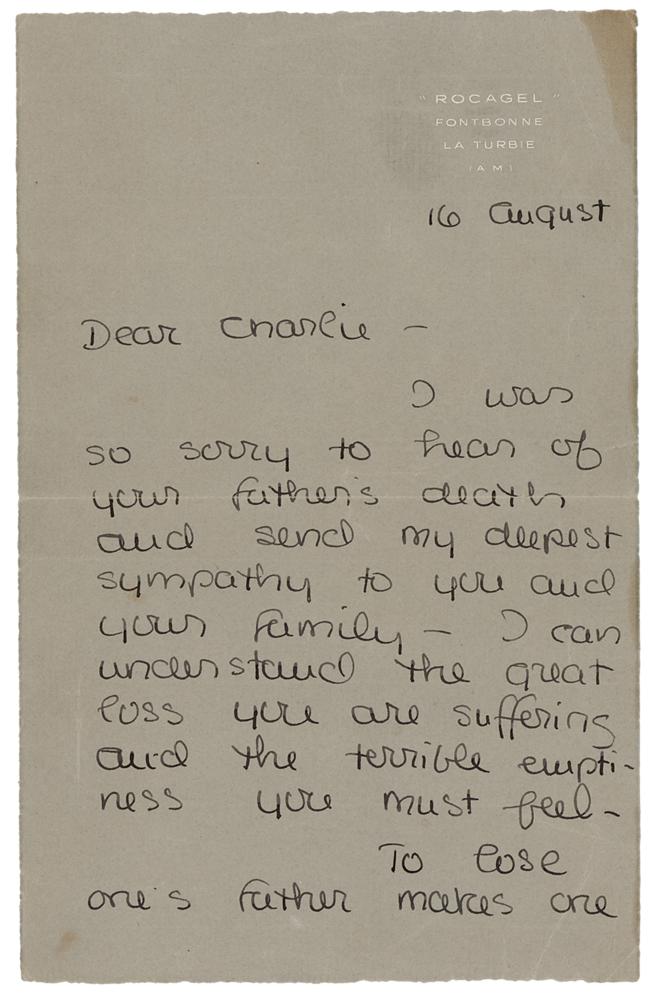 "ROCAGEL"
FONTBONNE
LA TURBIE
(A M)
16 August
Dear Charlie –
I was
so sorry to hear of
your father's death
and send my deepest
sympathy to you and
your family – I can
understand the great
loss you are suffering
and the terrible empti-
ness you must feel –
To lose
one's father makes one